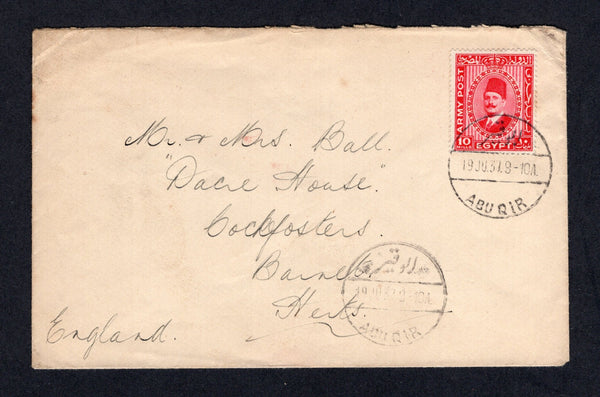 ARMY POST
10 EGYPT ١٠
19 JU.37.9-10A.
ABU QIR
Mr. & Mrs. Ball.
"Dacre House".
Cockfosters.
Barnet.
Herts.
England.
19 JU.37.9-10A.
ABU QIR